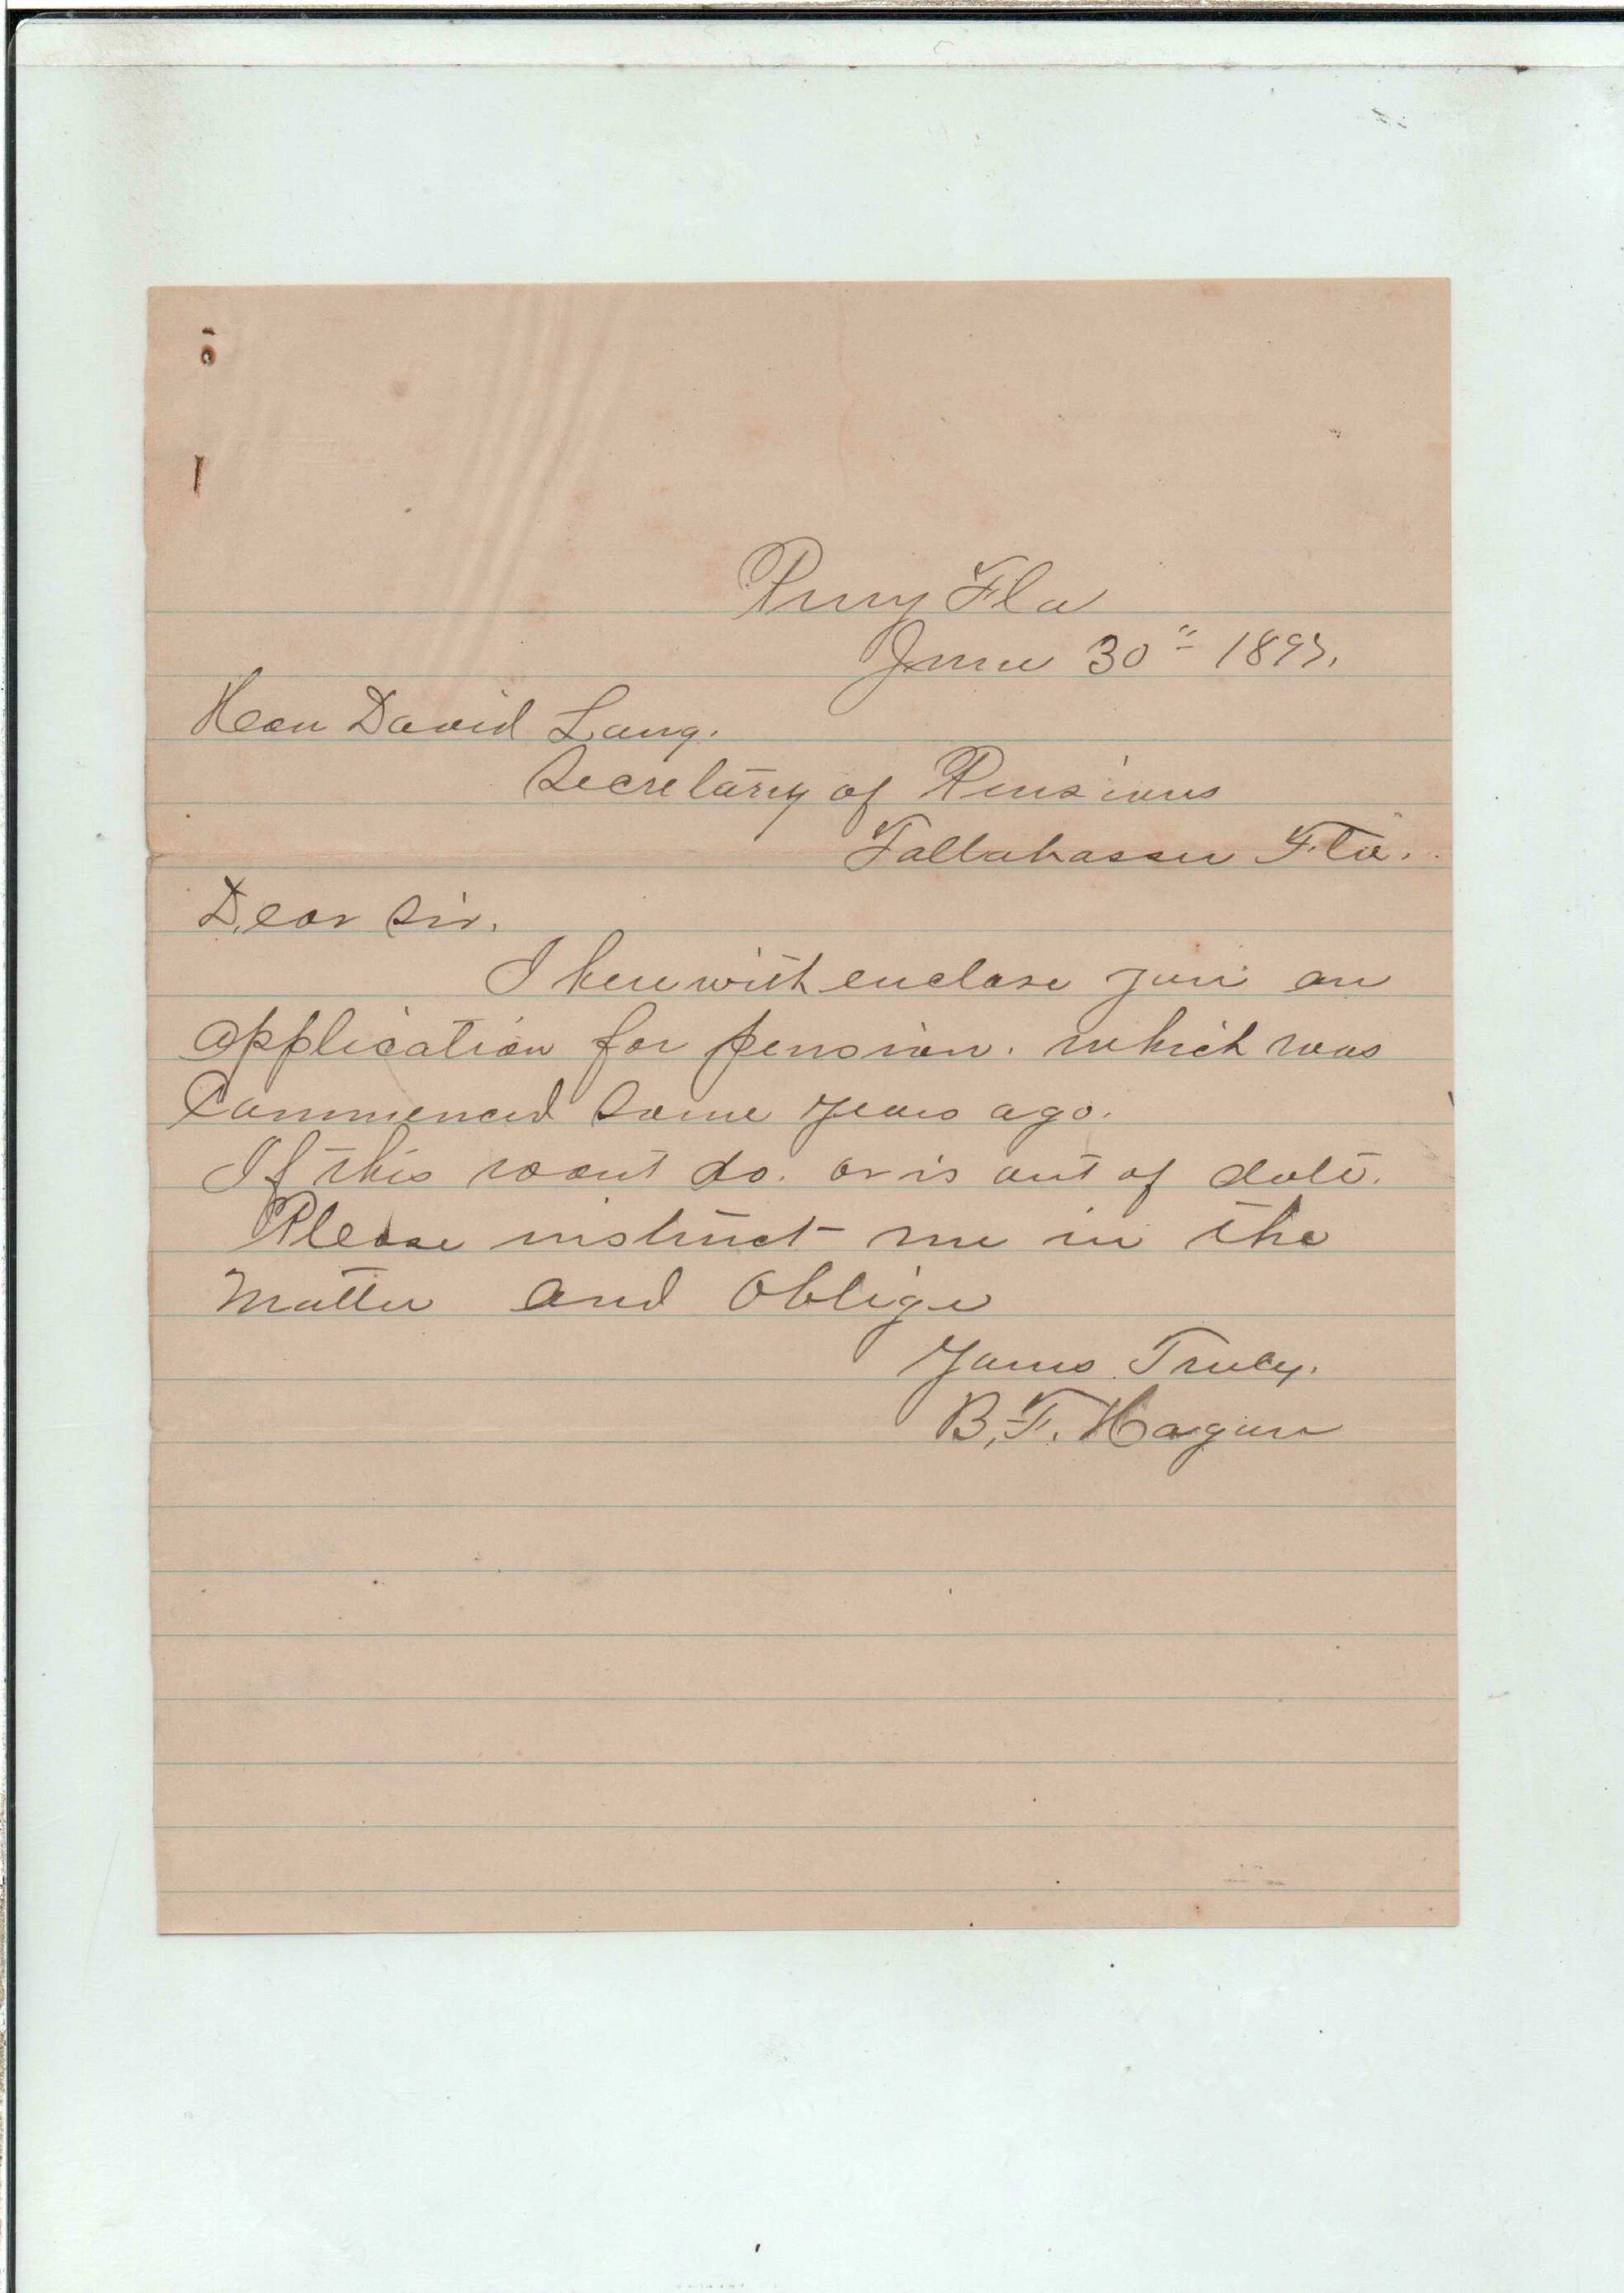 Perry Fla
June 30" 1897.
Hon David Lang.
Secretary of Pensions
Tallahassee Fla.
Dear Sir.
I herewith enclose you an
application for pension. which was
Commenced Some years ago.
If this wont do. or is out of date.
Please instruct me in the
Matter and Oblige
Yours Truly.
B. F. Hagan